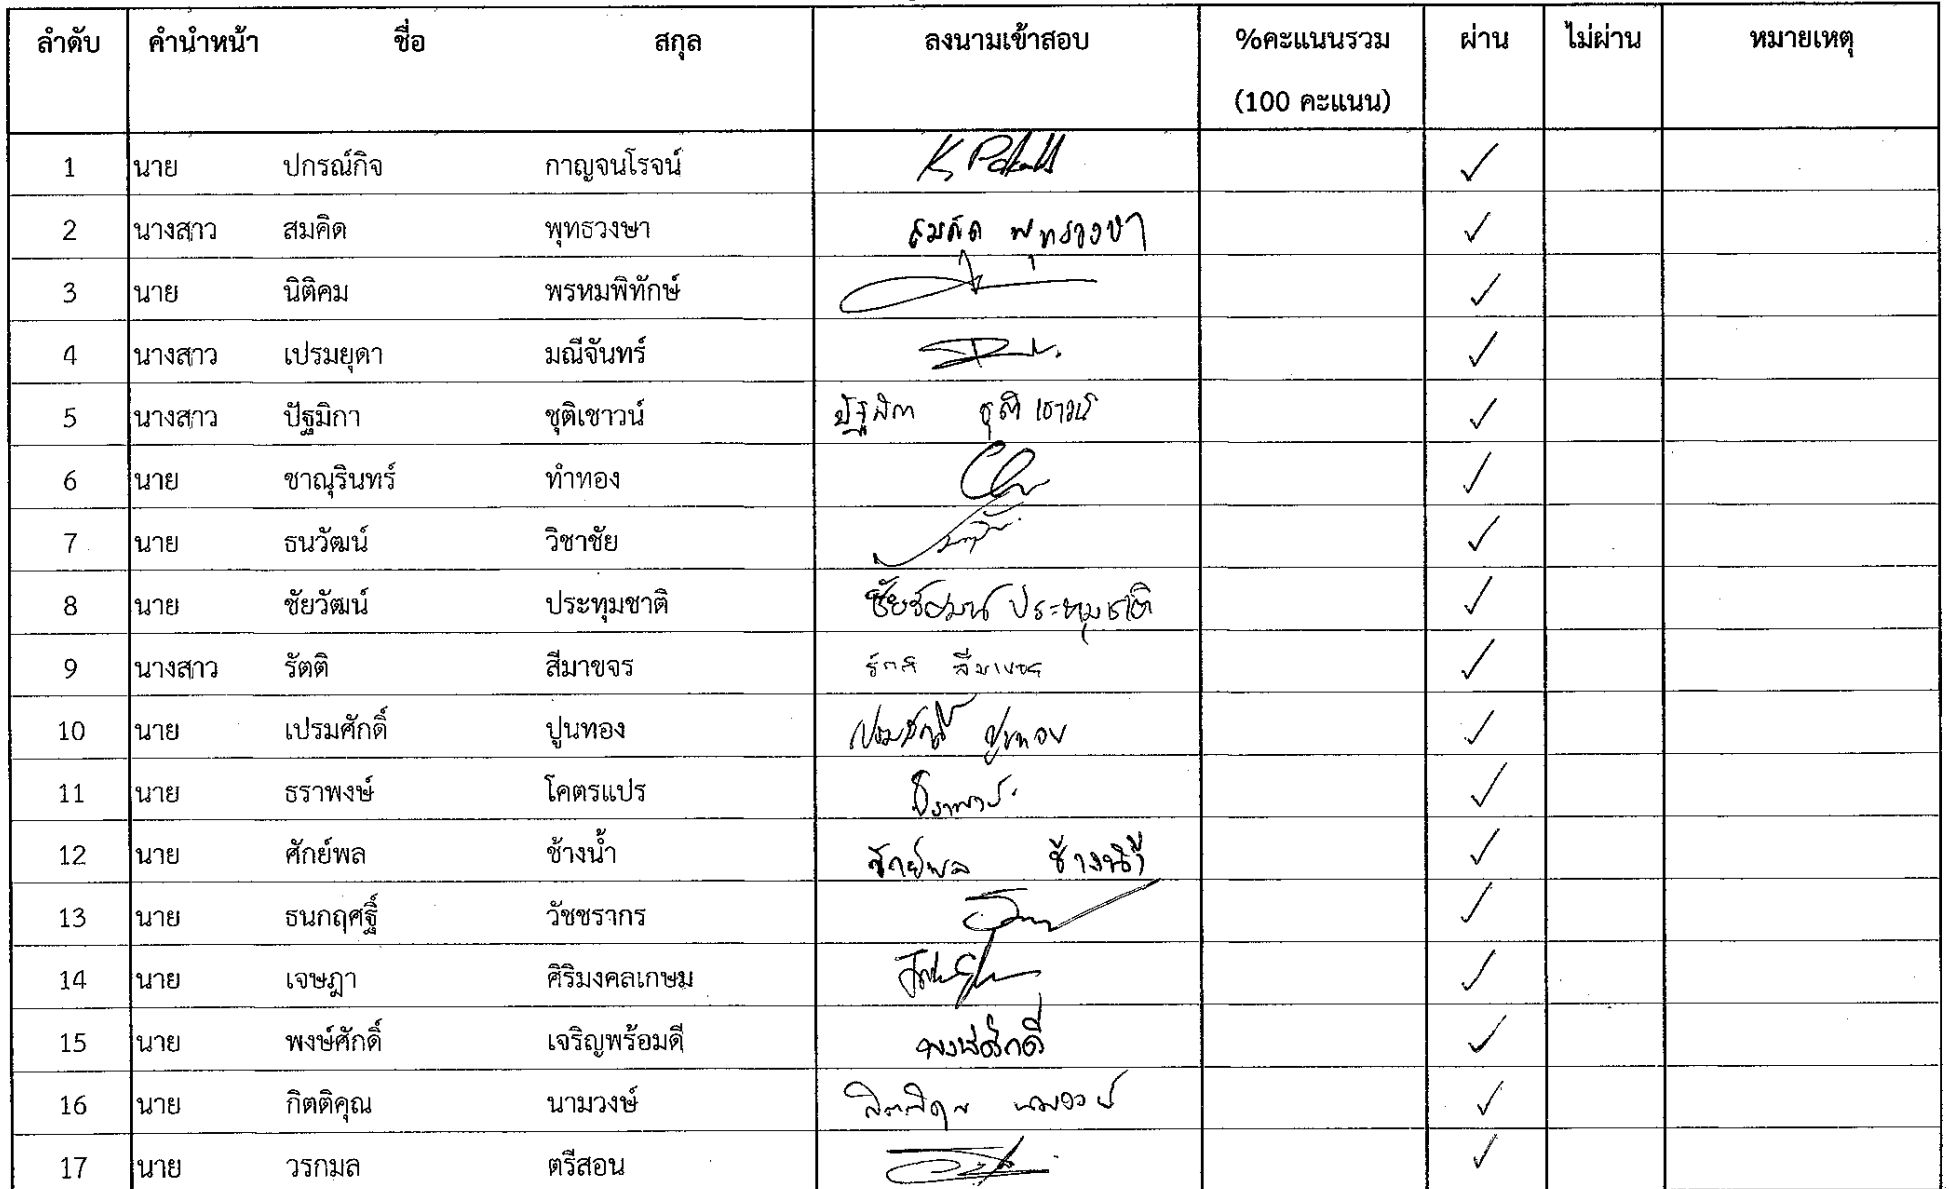 ลำดับ คำนำหน้า ชื่อ สกุล ลงนามเข้าสอบ %คะแนนรวม ผ่าน ไม่ผ่าน หมายเหตุ
(100 คะแนน)
1 นาย ปกรณ์กิจ กาญจนโรจน์ ✓
2 นางสาว สมคิด พุทธวงษา สมคิด พุทธวงษา ✓
3 นาย นิติคม พรหมพิทักษ์ ✓
4 นางสาว เปรมยุดา มณีจันทร์ ✓
5 นางสาว ปัฐมิกา ชุติเชาวน์ ปัฐมิกา ชุติเชาวน์ ✓
6 นาย ชาณุรินทร์ ทำทอง ✓
7 นาย ธนวัฒน์ วิชาชัย ✓
8 นาย ชัยวัฒน์ ประทุมชาติ ชัยวัฒน์ ประทุมชาติ ✓
9 นางสาว รัตติ สีมาขจร รัตติ สีมาขจร ✓
10 นาย เปรมศักดิ์ ปูนทอง เปรมศักดิ์ ปูนทอง ✓
11 นาย ธราพงษ์ โคตรแปร ✓
12 นาย ศักย์พล ช้างน้ำ ศักย์พล ช้างน้ำ ✓
13 นาย ธนกฤศฐิ์ วัชชรากร ✓
14 นาย เจษฎา ศิริมงคลเกษม ✓
15 นาย พงษ์ศักดิ์ เจริญพร้อมดี พงษ์ศักดิ์ ✓
16 นาย กิตติคุณ นามวงษ์ กิตติคุณ นามวงษ์ ✓
17 นาย วรกมล ตรีสอน ✓